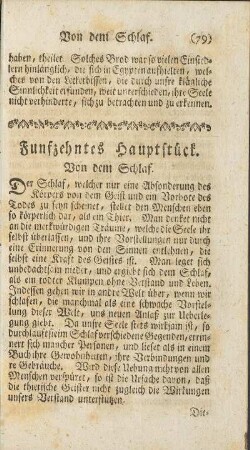 Von dem Schlaf. (79)
haben, theilet Solches Brod war so vielen Einsied-
lern hinlänglich, die sich in Egypten aufhielten, wel-
ches von den Leckerbissen, die durch unsre klägliche
Sinnlichkeit erfunden, weit unterschieden, ihre Seele
nicht verhinderte, sich zu betrachten und zu erkennen.
Funfzehntes Hauptstück.
Von dem Schlaf.
Der Schlaf, welcher nur eine Absonderung des
Körpers von dem Geist und ein Vorbote des
Todes zu seyn scheinet, stellet den Menschen eben
so körperlich dar, als ein Thier. Man denket nicht
an die merkwürdigen Träume, welche die Seele ihr
selbst überlassen, und ihre Vorstellungen nur durch
eine Erinnerung von den Sinnen entlehnen, die
selbst eine Kraft des Geistes ist. Man leget sich
unbedachtsam nieder, und ergibt sich dem Schlaf,
als ein rodter Klumpen ohne Verstand und Leben.
Indessen gehen wir in andre Welt über, wenn wir
schlafen, die manchmal als eine schwache Vorstel-
lung dieser Welt, uns neuen Anlaß zur Ueberle-
gung giebt. Da unsre Seele stets wirksam ist, so
durchlauft sie im Schlaf verschiedene Gegenden, erin-
nert sich mancher Personen, und lieset als in einem
Buch ihre Gewohnheiten, ihre Verbindungen und
re Gebräuche. Wird diese Uebung nicht von allen
Menschen verspüret, so ist die Ursache davon, daß
die thierische Geister nicht zugleich die Wirkungen
unsers Verstand unterstützen.
Die-